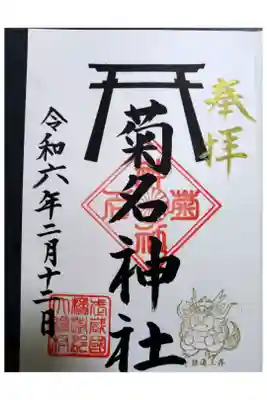 奉拝
菊名神社
令和六年二月十二日